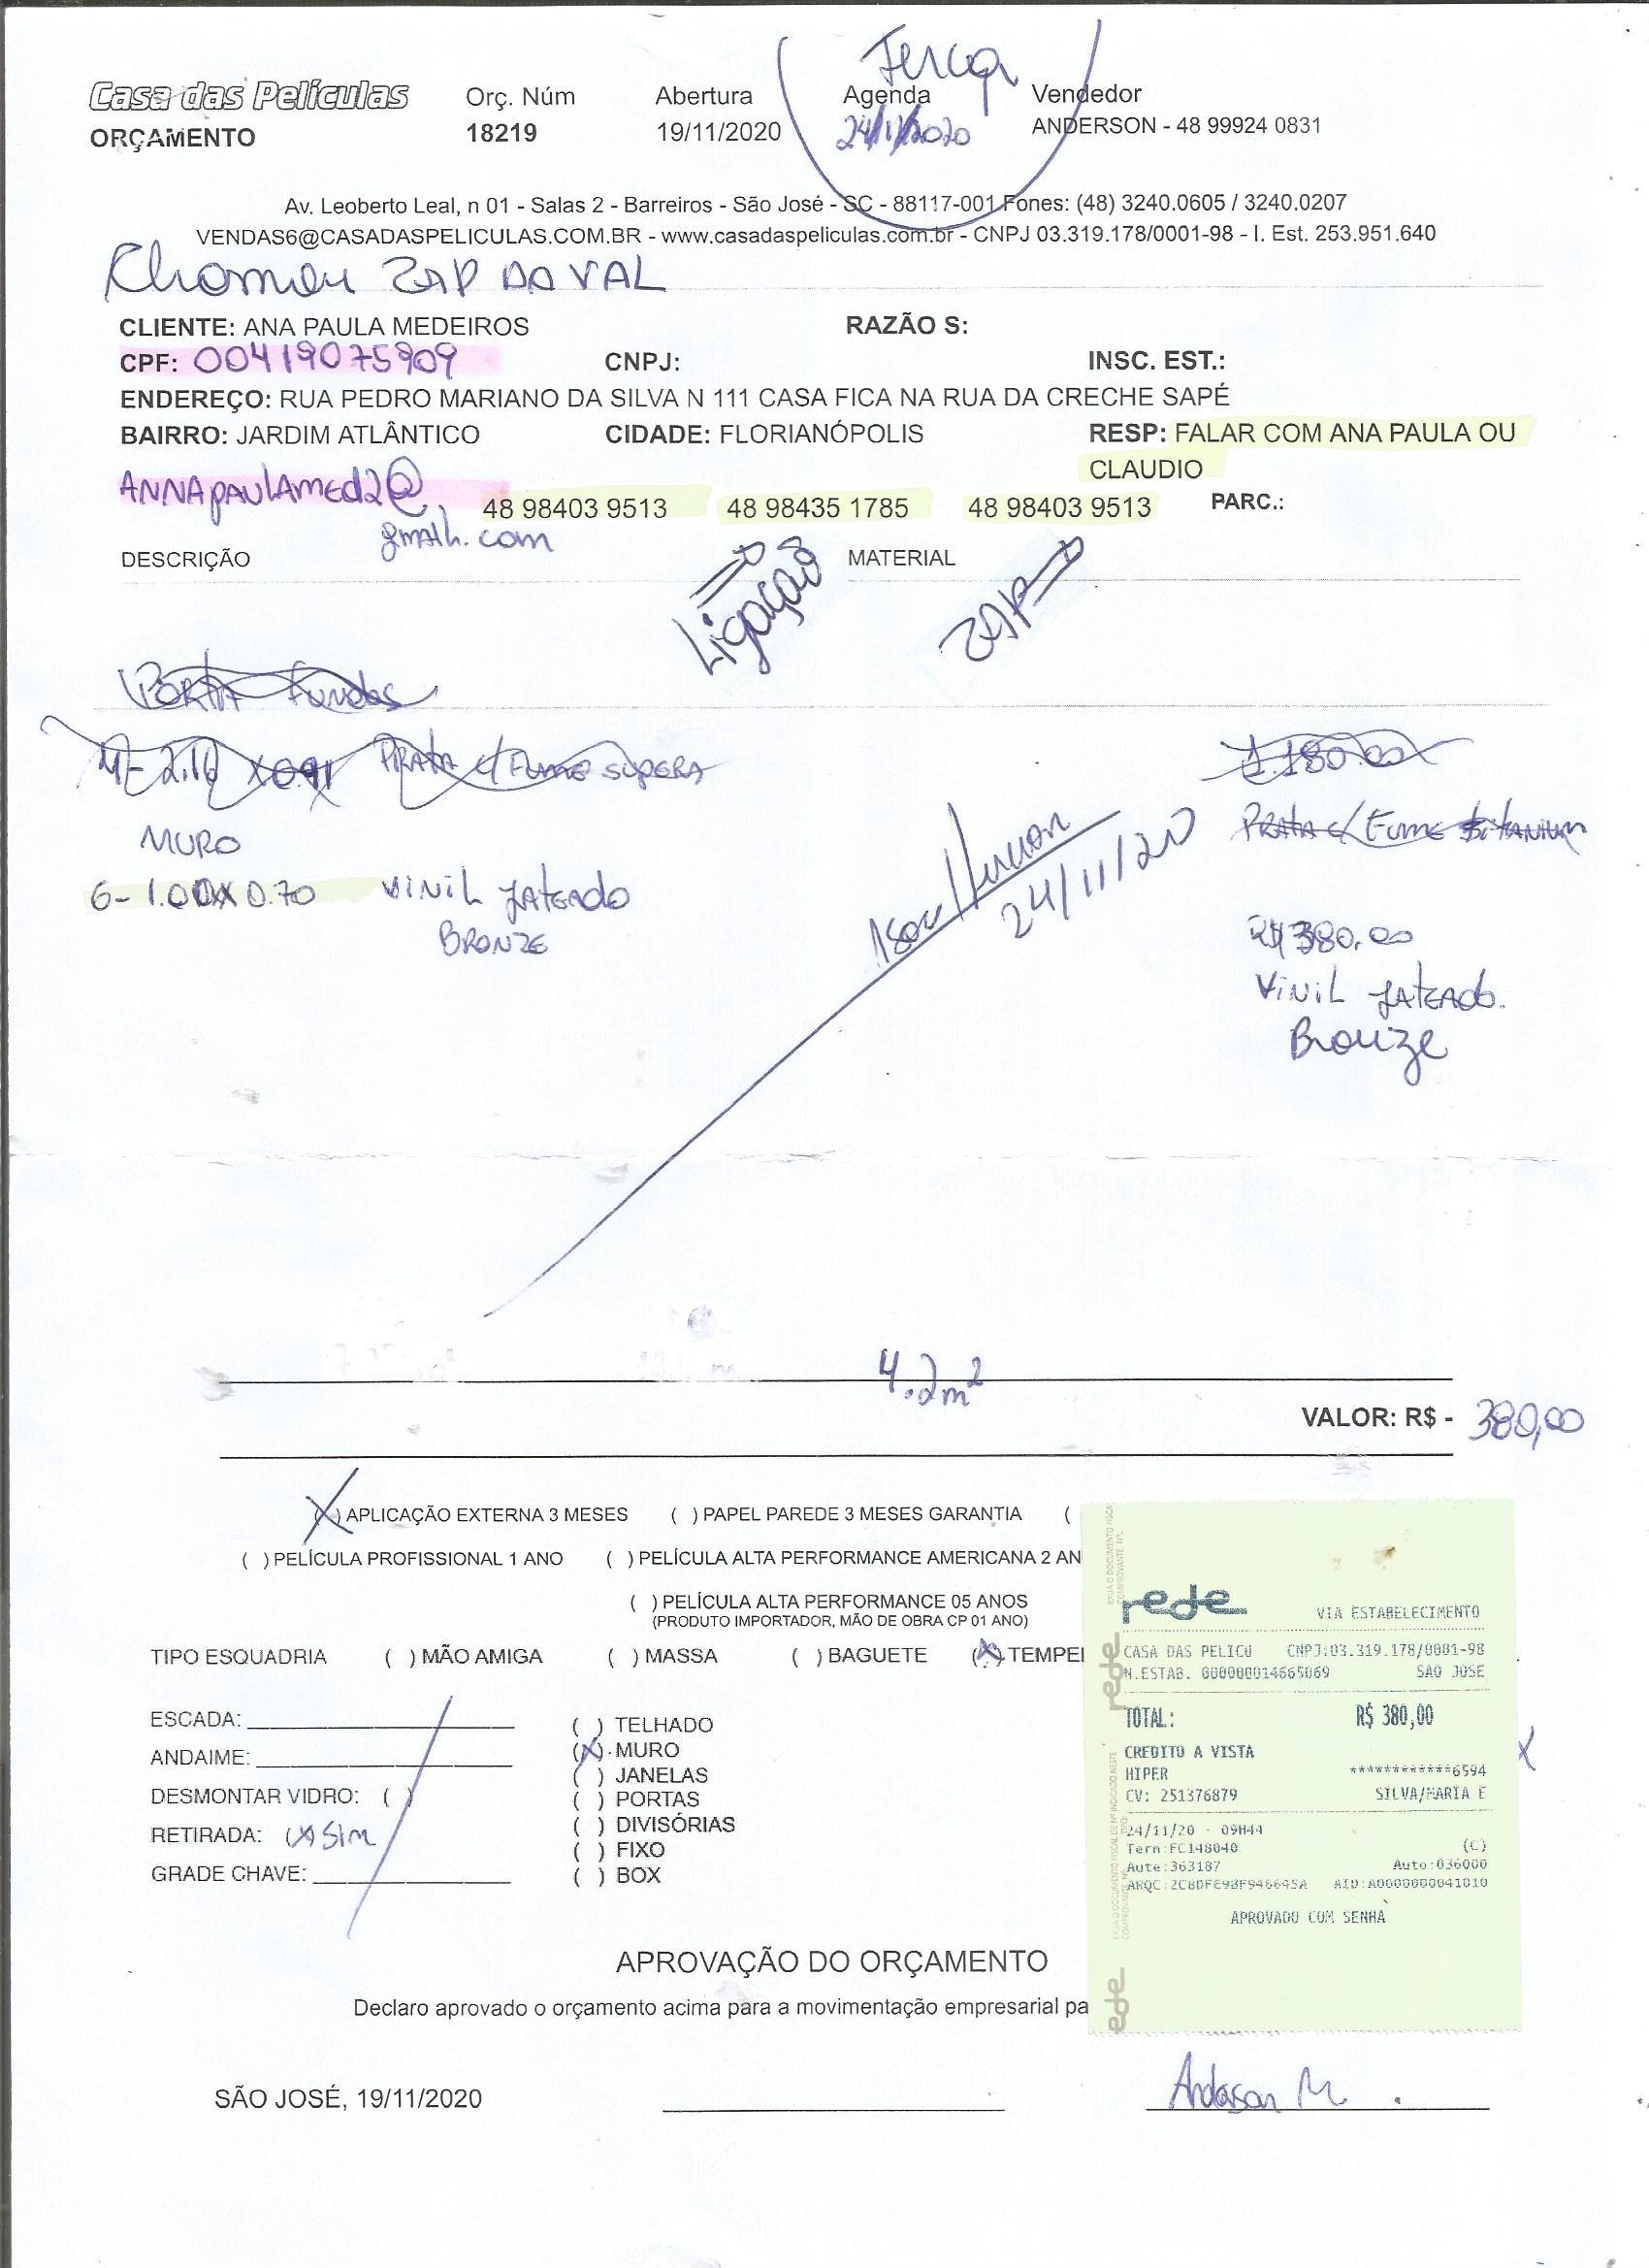 Terça
Casa das Películas Orç. Núm Abertura Agenda Vendedor
ORÇAMENTO 18219 19/11/2020 24/11/2020 ANDERSON - 48 99924 0831
Av. Leoberto Leal, n 01 - Salas 2 - Barreiros - São José - SC - 88117-001 Fones: (48) 3240.0605 / 3240.0207
VENDAS6@CASADASPELICULAS.COM.BR - www.casadaspeliculas.com.br - CNPJ 03.319.178/0001-98 - I. Est. 253.951.640
ZAP DA VAL
CLIENTE: ANA PAULA MEDEIROS RAZÃO S:
CPF: 00419075909 CNPJ: INSC. EST.:
ENDEREÇO: RUA PEDRO MARIANO DA SILVA N 111 CASA FICA NA RUA DA CRECHE SAPÉ
BAIRRO: JARDIM ATLÂNTICO CIDADE: FLORIANÓPOLIS RESP: FALAR COM ANA PAULA OU
CLAUDIO
ANNAPAULAMED2@ 48 98403 9513 48 98435 1785 48 98403 9513 PARC.:
DESCRIÇÃO MATERIAL
Ligação ZAP
PORTA Fundos
PRATA c/ FUME SUPERA
MURO PRATA c/ FUME titANIUM
6- 1.00X0.70 VINIL JATEADO
BRONZE 24/11/20 R$ 380,00
VINIL JATEADO.
Bronze
4.2m²
VALOR: R$ - 380,00
(X) APLICAÇÃO EXTERNA 3 MESES ( ) PAPEL PAREDE 3 MESES GARANTIA (
( ) PELÍCULA PROFISSIONAL 1 ANO ( ) PELÍCULA ALTA PERFORMANCE AMERICANA 2 AN
( ) PELÍCULA ALTA PERFORMANCE 05 ANOS
(PRODUTO IMPORTADOR, MÃO DE OBRA CP 01 ANO)
TIPO ESQUADRIA ( ) MÃO AMIGA ( ) MASSA ( ) BAGUETE (X) TEMPE
ESCADA:
ANDAIME:
DESMONTAR VIDRO: ( )
RETIRADA: (X) SIM
GRADE CHAVE:
( ) TELHADO
(X) MURO
( ) JANELAS
( ) PORTAS
( ) DIVISÓRIAS
( ) FIXO
( ) BOX
rede VIA ESTABELECIMENTO
CASA DAS PELICU CNPJ:03.319.178/0001-98
N.ESTAB. 000000014665069 SAO JOSE
TOTAL: R$ 380,00
CREDITO A VISTA
HIPER ************6594
CV: 251376879 SILVA/MARIA E
24/11/20 - 09H44
Term:FC148040 (C)
Aute:363187 Auto:036000
AID:A0000000041010
APROVADO COM SENHA
rede
rede
APROVAÇÃO DO ORÇAMENTO
Declaro aprovado o orçamento acima para a movimentação empresarial pa
SÃO JOSÉ, 19/11/2020 Anderson M.